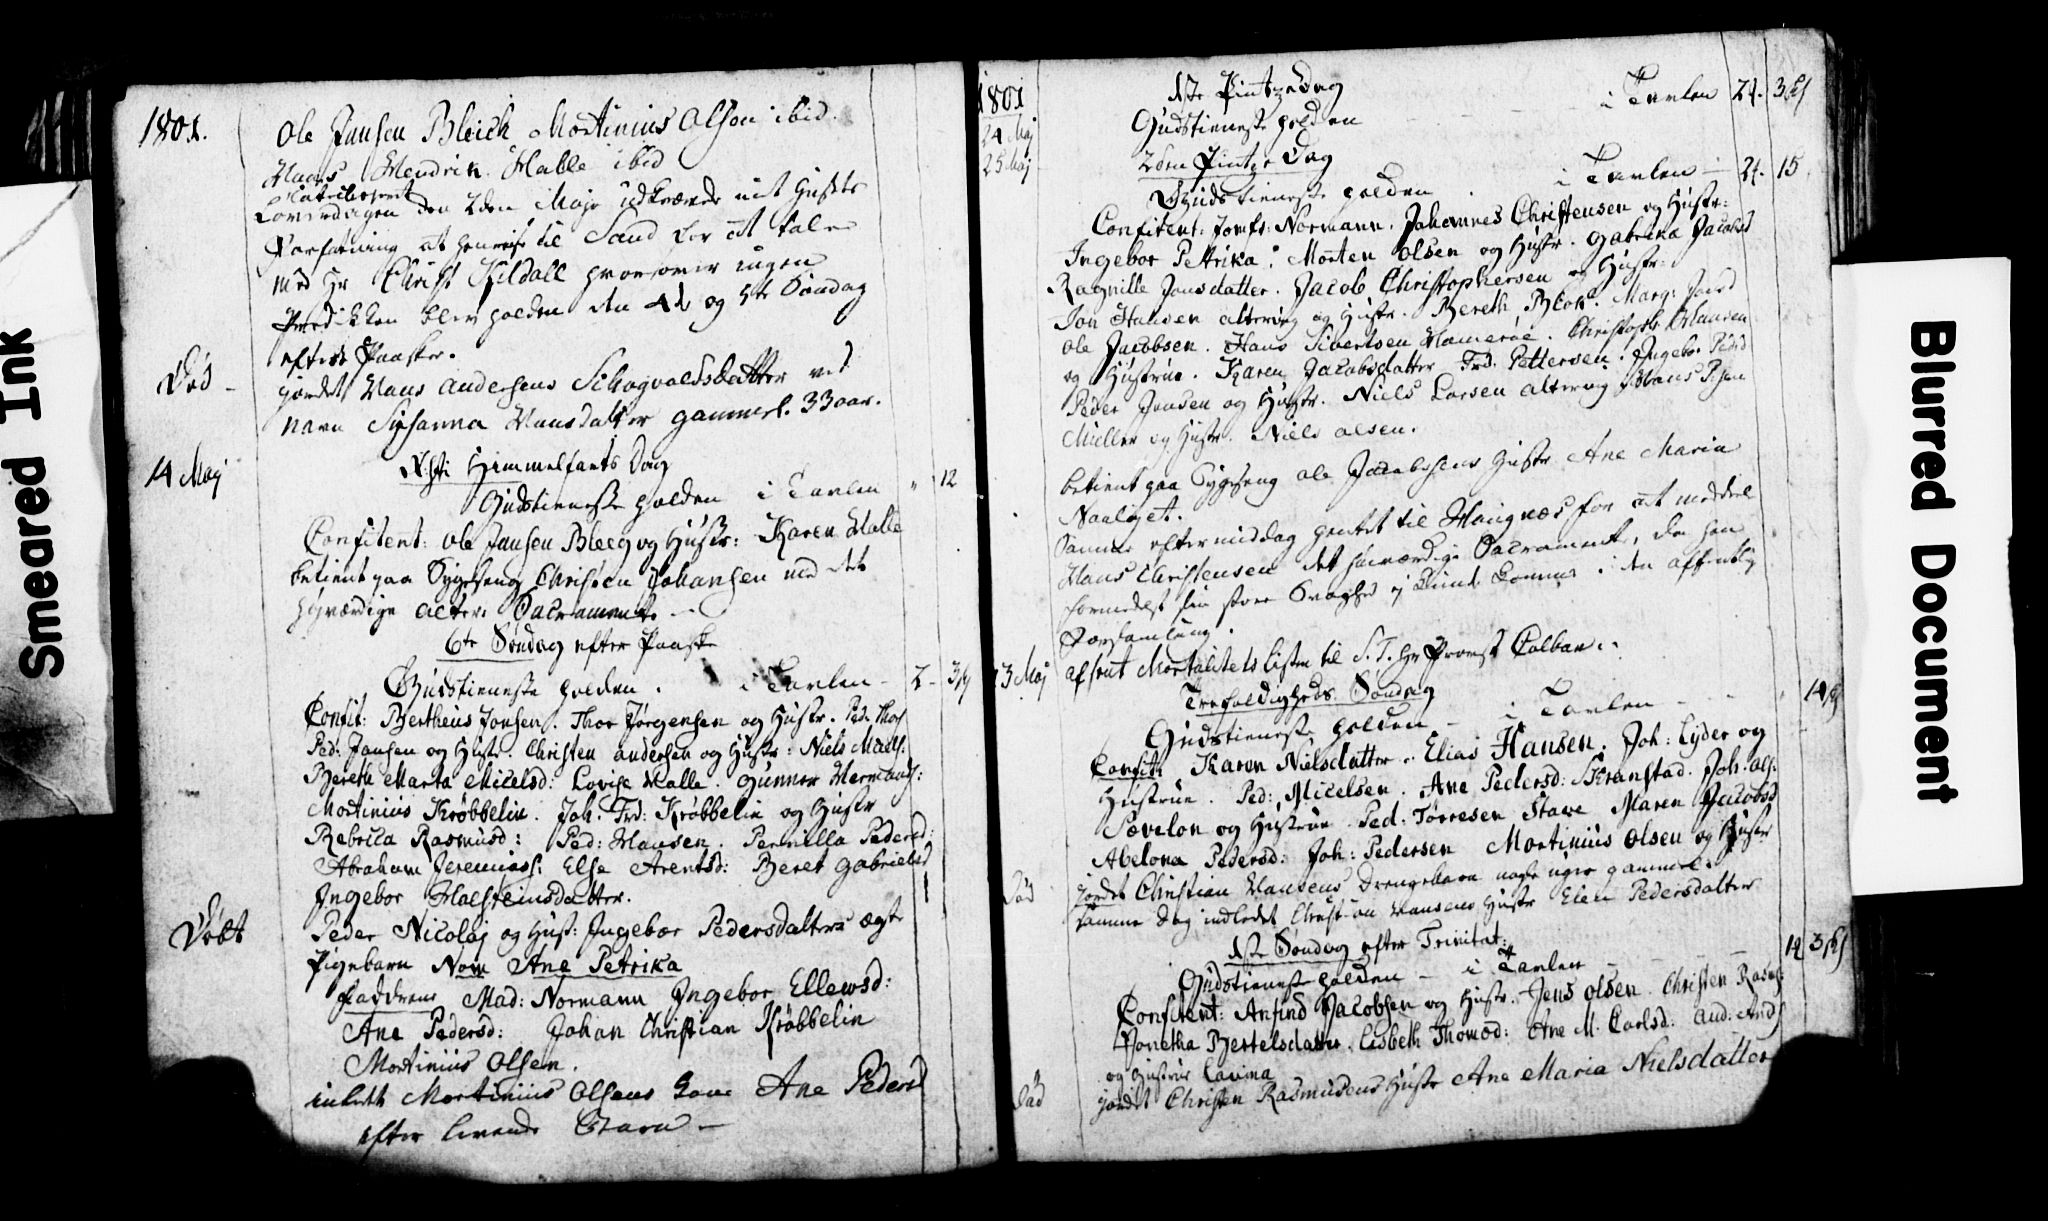 Smeared Ink
1801.
Ole Jansen Bleich Mortinius Olsen ibid.
Hans Hendrik Halle ibid
Løverdagen den 2den Maje udkrævede mit Huses
Forfatning at henreise til Sand for at tale
med Hr Christ Kildall hvorover ingen
Prædikken blev holden den 4de og 5te Søndag
efter Paaske.
Død - jordet Hans Andersens Datter ved
navn Susanna Hansdatter gammel. 33 aar.
14 Maj
Christi Himmelfarts Dag
Gudstieneste holden i Tavlen " 12
Confitent: Ole Jansen Bleeg og Hustr: Karen Halle
betient paa Sygeseng Christen Johansen med det
høyværdige Alters Sacramente. -
6te Søndag efter Paaske
Gudstieneste holden. i Tavlen - 2 - 3
Confit: Bertheus Jonsen. Thor Jørgensen og Hustr. Ped. Thos
Ped: Jansen og Hustr. Christen Andersen og Hustr: Niels Mads:
Bereth Marta Micelsd: Lovise Halle. Gunner Hermands:
Mortinius Krøbbelin. Joh. Frd: Krøbbelin og Hustr
Rebecca Rasmusd: Ped: Hansen. Pernilla Pedersd:
Abraham Jeremiass: Else Arentsd: Beret Gabrielsd
Ingebor Holsteinsdatter.
Døbt Peder Nicolaj og Hust: Ingebor Pedersdatters ægte
Pigebarn Nom Ane Petrika
Faddrene Mad: Normann Ingebor Ellewsd:
Ane Pedersd: Johan Christian Krøbbelin
Mortinius Olsen.
inledt Mortinius Olsens Kone Ane Pedersd
efter levende Barn -
1801
24 Maj
1ste Pintzedag
Gudstieneste holden i Tavlen 24. 3
25 Maj
2den Pintze Dag
Gudstieneste holden. i Tavlen - 24. 15
Confitent: Jomfr: Normann. Johannes Christensen og Hustr:
Ingebor Petrika: Morten Olsen og Hustr. Gabrina Jacobsd
Ragnille Jonsdatter. Jacob Christophersen og Hustr:
Jon Hansen altering og Hustr. Bereth Blok. Marg: Jonsd
Ole Jacobsen. Hans Sivertsen Hamerøe. Christoph: Hansen
og Hustrue. Karen Jacobsdatter Frd. Pettersen. Ingebor Pedsd
Peder Jonsen og Hustr. Niels Larsen altering Hans
Müller og Hustr. Niels Olsen.
betient paa Sygeseng Ole Jacobsens Hustr Ane Maria
Naaløyet.
Samme eftermiddag hentet til Haugnæs for at meddeel
Hans Christensen det høiværdige Sacrament, da han
formedelst sin store Svaghed ej kunde komme i den offentlig
Forsamling.
3 Maj afsent Mortalitets listen til S. T. Hr Provst Colban.
Trefoldigheds Søndag
Gudstieneste holden - i Tavlen - 14
Confit: Karen Nielsdatter. Elias Hansen. Joh: Lyder og
Hustrue. Ped: Micelsen. Ane Pedersd: Kranstad. Joh. Ols:
Povelon og Hustrue Ped: Torresen Stave Maren Jacobsd
Abelona Pedersd: Joh: Pedersen Mortinius Olsen og Hustr
Død jordet Christian Hansens Drengebarn nogle uger gammel.
samme Dag indledet Christian Hansens Hustr Elen Pedersdatter
1ste Søndag efter Trinitat:
Gudstieneste holden - i Tavlen 12 3
Confitent: Anfind Jacobsen og Hustr. Jens Olsen. Christen Rasm
Jonetha Bertelsdatter. Lisbeth Thomød: Ane M. Carlsd: And: Ands
og Hustrue Lavina
Død jordet Christen Rasmusens Hustr Ane Maria Nielsdatter
Blurred Document